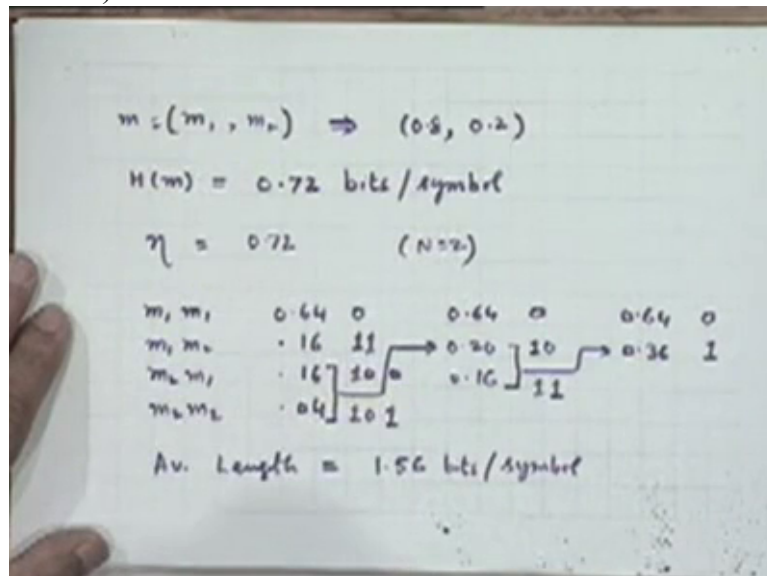 m = (m₁, m₂) ⇒ (0.8, 0.2)
H(m) = 0.72 bits/symbol
η = 0.72 (N=2)
m₁ m₁ 0.64 0 0.64 0 0.64 0
m₁ m₂ .16 11 → 0.20 10 → 0.36 1
m₂ m₁ .16 100 0.16 11
m₂ m₂ .04 101
Av. Length = 1.56 bits/symbol